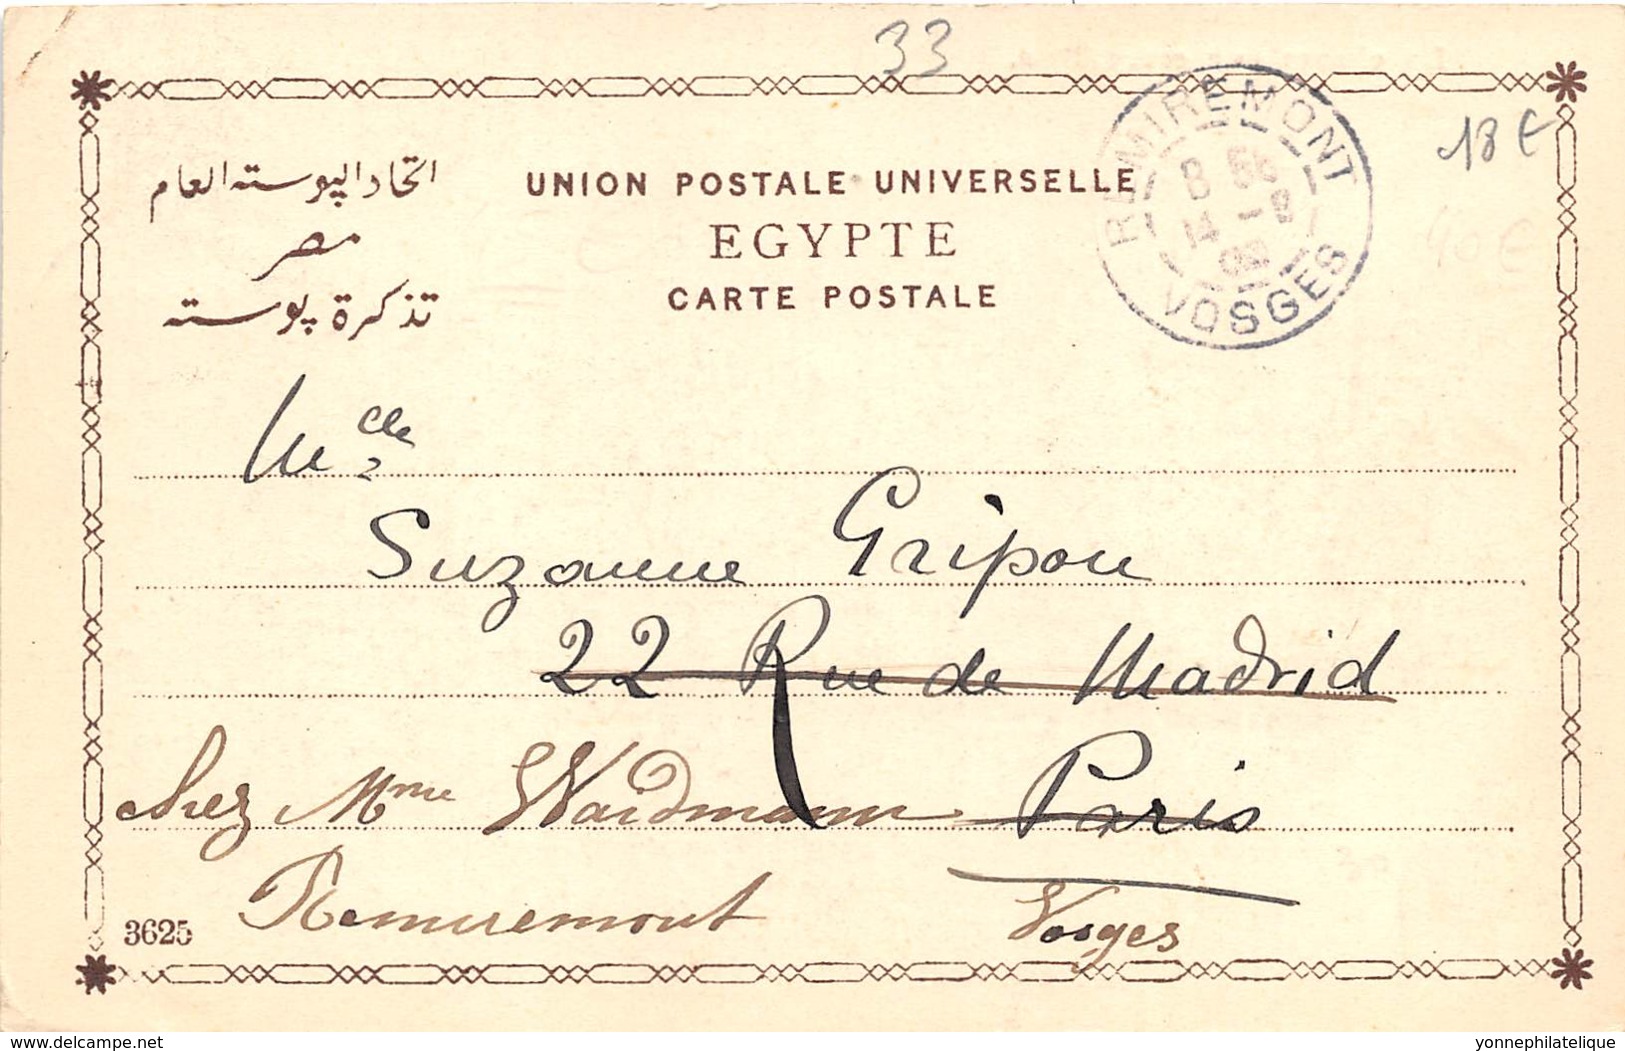 33
18 €
40 €
اتحاد البوسته العام
مصر
تذكرة بوسته
UNION POSTALE UNIVERSELLE
EGYPTE
CARTE POSTALE
REMIREMONT
VOSGES
Melle
Suzanne Gripon
22 Rue de Madrid
Paris
chez Mme Waidmann
Remiremont Vosges
3625
www.delcampe.net
yonnephilatelique